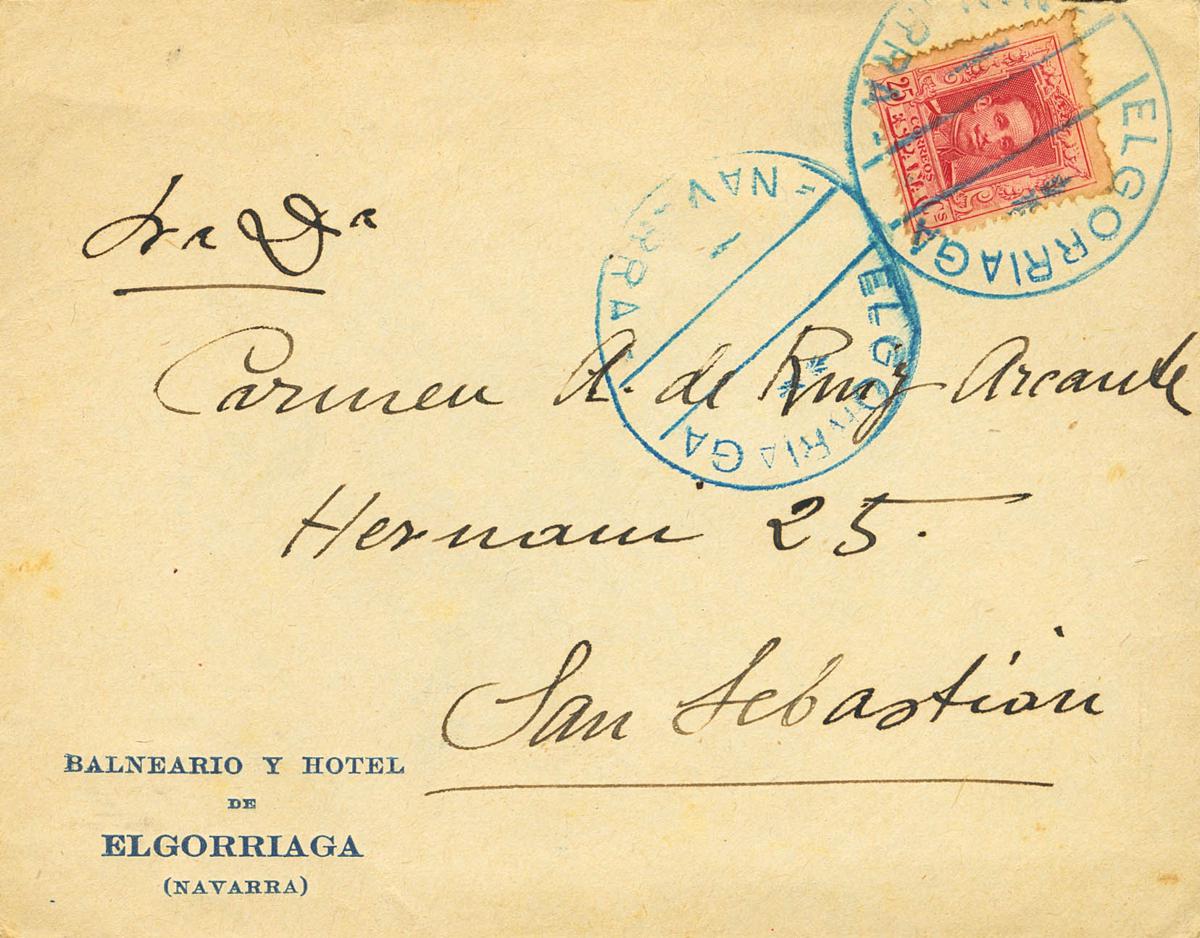 NAVARRA
ELGORRIAGA
25
CORREOS
ESPAÑA
NAVARRA
ELGORRIAGA
Sra Da
Carmen A. de Ruiz Arcaute
Hernani 25.
San Sebastian
BALNEARIO Y HOTEL
DE
ELGORRIAGA
(NAVARRA)